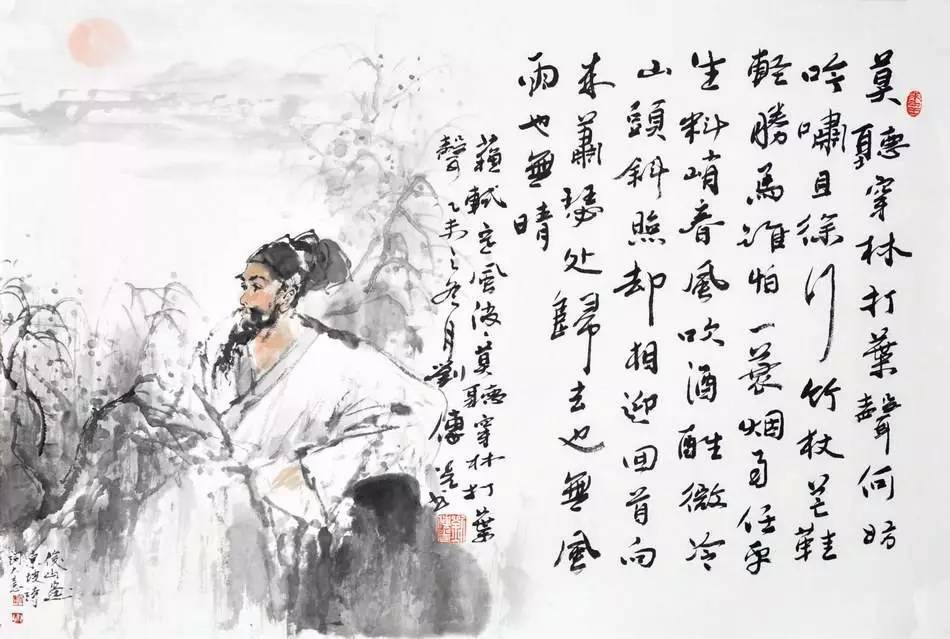 莫聽穿林打葉聲何妨
吟嘯且徐行竹杖芒鞋
輕勝馬誰怕一蓑烟雨任平
生料峭春風吹酒醒微冷
山頭斜照却相迎回首向
来蕭瑟处歸去也無風
雨也無晴
蘇軾定風波莫聽穿林打葉
聲乙未之冬月劉傳
俊山画
東坡詩